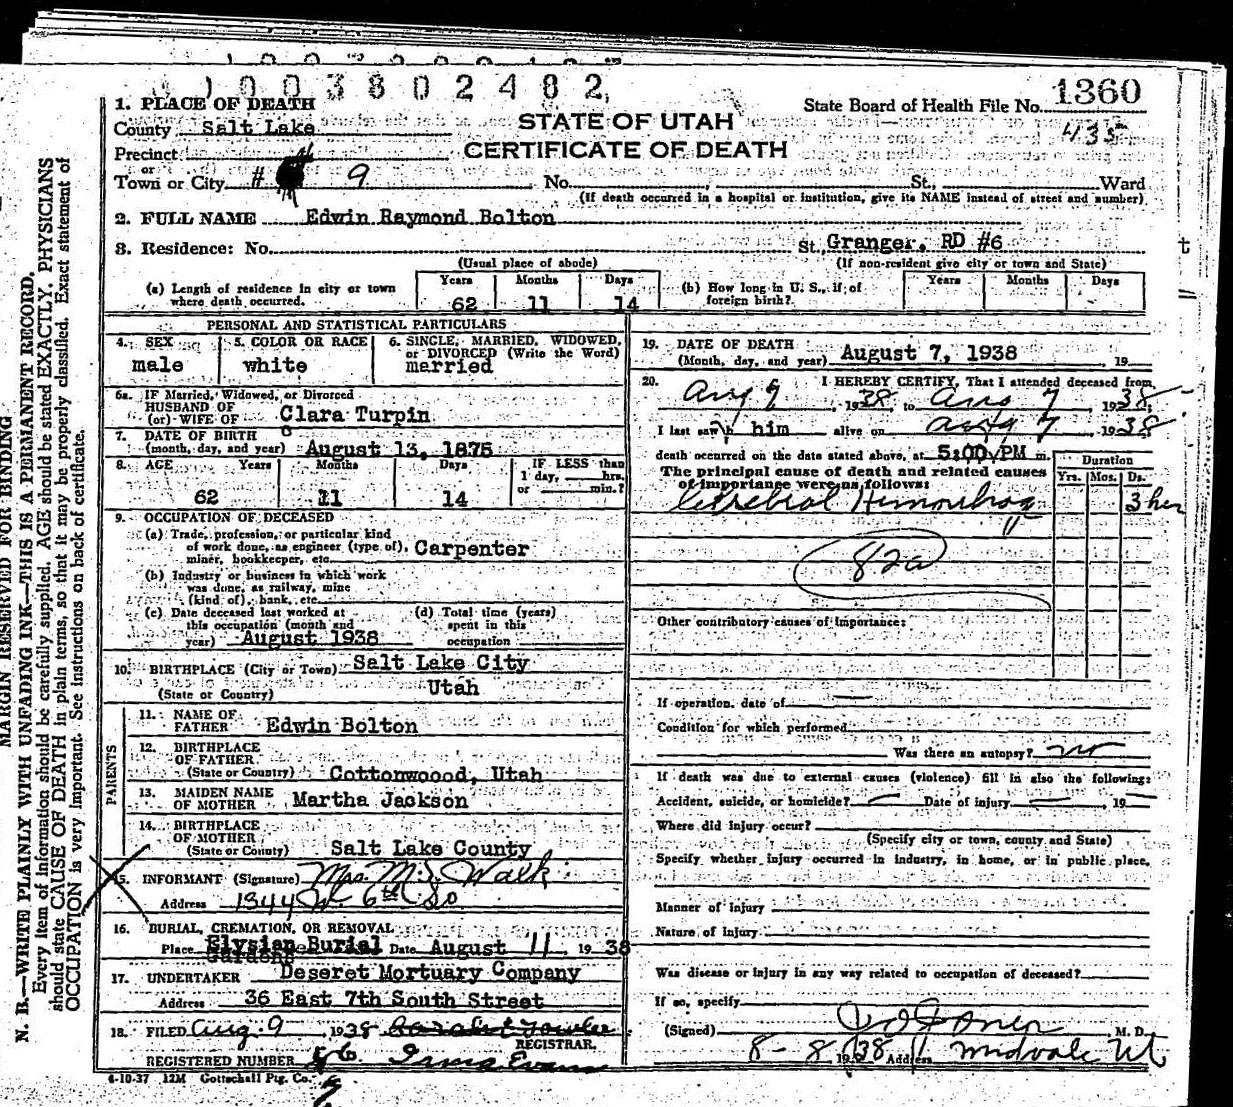 1003802482
1360
1. PLACE OF DEATH
State Board of Health File No.
County Salt Lake
STATE OF UTAH
435
Precinct
CERTIFICATE OF DEATH
or
Town or City # 9 No. St., Ward
(If death occurred in a hospital or institution, give its NAME instead of street and number)
2. FULL NAME Edwin Raymond Bolton
3. Residence: No. St. Granger, RD #6
(Usual place of abode) (If non-resident give city or town and State)
(a) Length of residence in city or town where death occurred. Years 62 Months 11 Days 14
(b) How long in U. S., if of foreign birth? Years Months Days
PERSONAL AND STATISTICAL PARTICULARS
4. SEX male
5. COLOR OR RACE white
6. SINGLE, MARRIED, WIDOWED, or DIVORCED (Write the Word) married
6a. IF Married, Widowed, or Divorced
HUSBAND OF
(or) WIFE OF Clara Turpin
7. DATE OF BIRTH
(month, day, and year) August 13, 1875
8. AGE Years Months Days IF LESS than
1 day, hrs.
or min.?
62 11 14
9. OCCUPATION OF DECEASED
(a) Trade, profession, or particular kind
of work done, as engineer (type of),
miner, bookkeeper, etc. Carpenter
(b) Industry or business in which work
was done, as railway, mine
(kind of), bank, etc.
(c) Date deceased last worked at
this occupation (month and
year) August 1938
(d) Total time (years)
spent in this
occupation
10. BIRTHPLACE (City or Town) Salt Lake City
(State or Country) Utah
PARENTS
11. NAME OF
FATHER Edwin Bolton
12. BIRTHPLACE
OF FATHER
(State or Country) Cottonwoood, Utah
13. MAIDEN NAME
OF MOTHER Martha Jackson
14. BIRTHPLACE
OF MOTHER
(State or County) Salt Lake County
15. INFORMANT (Signature) Mrs. M. J. Walk
Address 1344 W 6th So
16. BURIAL, CREMATION, OR REMOVAL
Place Elysian Burial Date August 11, 1938
Gardens
17. UNDERTAKER Deseret Mortuary Company
Address 36 East 7th South Street
18. FILED Aug. 9, 1938
REGISTRAR.
REGISTERED NUMBER Irma Evans
4-10-37 12M Gottschall Ptg. Co.
19. DATE OF DEATH
(Month, day, and year) August 7, 1938 19
20. I HEREBY CERTIFY, That I attended deceased from
Aug 7, 1938, to Aug 7 1938;
I last saw him alive on Aug 7 1938
death occurred on the date stated above, at 5:00 PM m.
The principal cause of death and related causes
of importance were as follows:
Duration
Yrs. Mos. Ds.
Cerebral Hemorrhag 3 hrs
82a
Other contributory causes of importance:
If operation, date of
Condition for which performed
Was there an autopsy? no
If death was due to external causes (violence) fill in also the following:
Accident, suicide, or homicide? Date of injury , 19
Where did injury occur?
(Specify city or town, county and State)
Specify whether injury occurred in industry, in home, or in public place.
Manner of injury
Nature of injury
Was disease or injury in any way related to occupation of deceased?
If so, specify
(Signed) M. D.
8-8, 1938 Address Midvale Ut
MARGIN RESERVED FOR BINDING
N. B.—WRITE PLAINLY WITH UNFADING INK—THIS IS A PERMANENT RECORD.
Every item of information should be carefully supplied. AGE should be stated EXACTLY. PHYSICIANS
should state CAUSE OF DEATH in plain terms, so that it may be properly classified. Exact statement of
OCCUPATION is very important. See instructions on back of certificate.